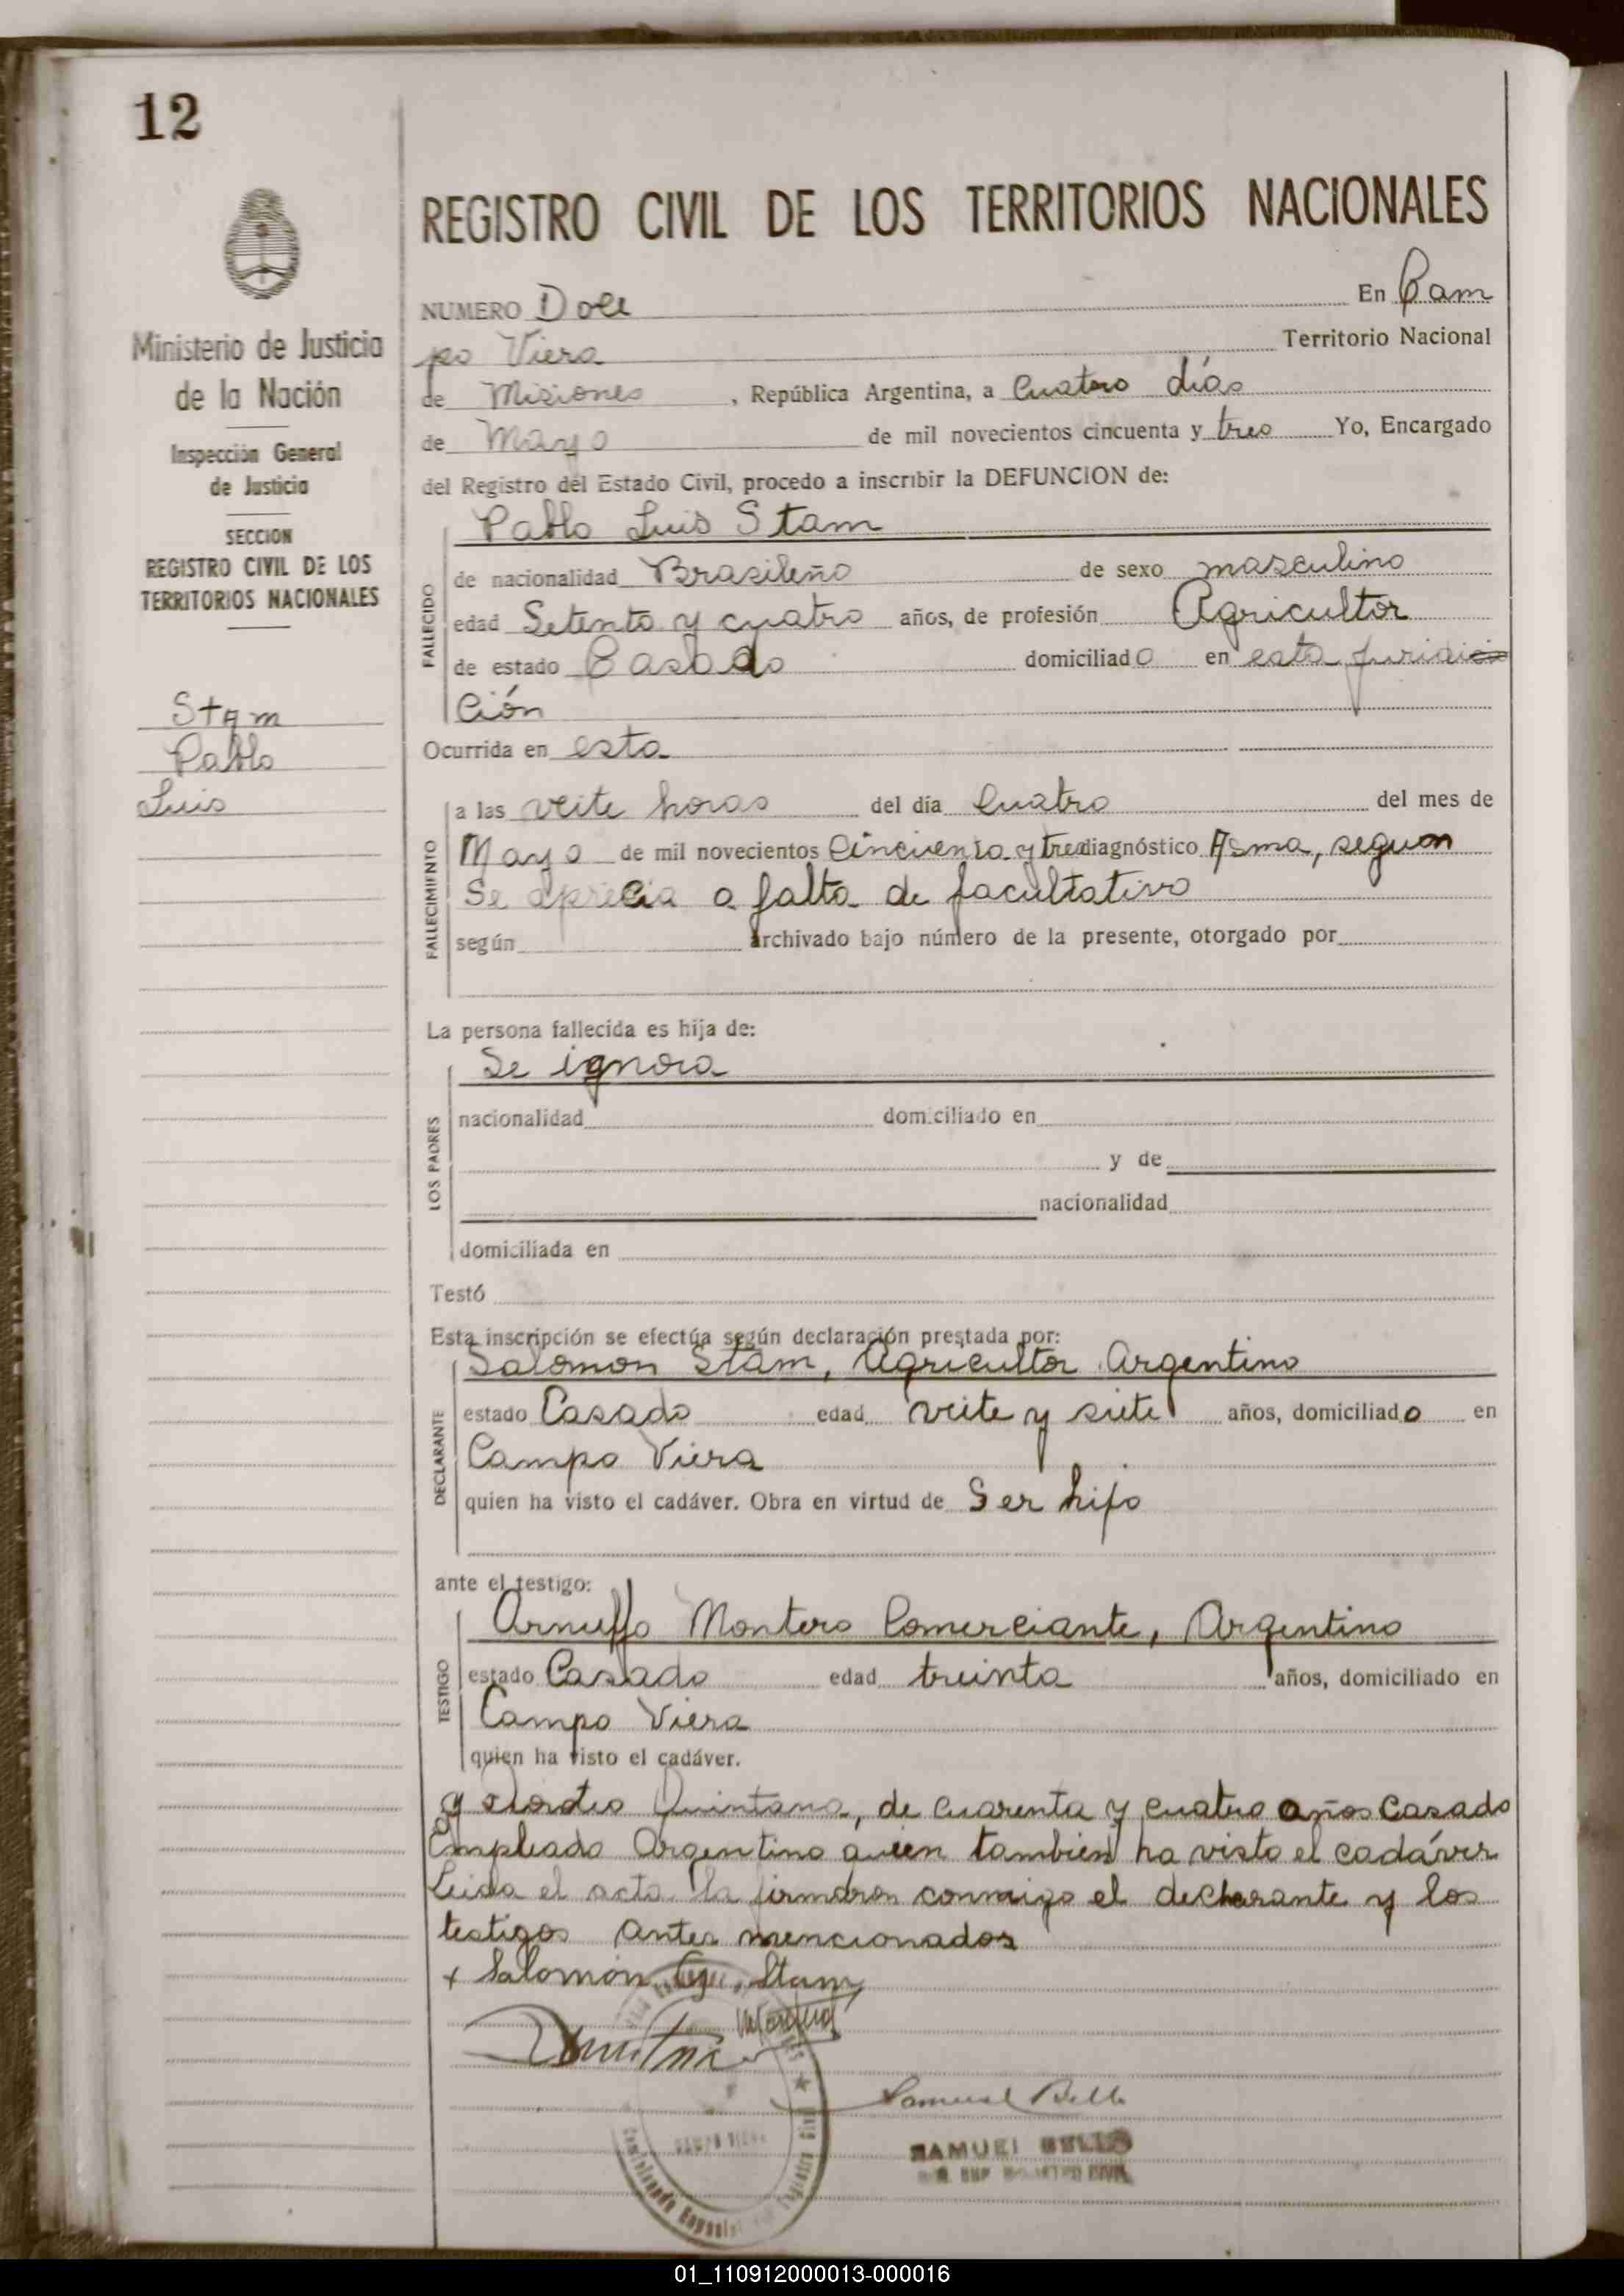 12
REGISTRO CIVIL DE LOS TERRITORIOS NACIONALES
Ministerio de Justicia
de la Nación
Inspección General
de Justicia
SECCION
REGISTRO CIVIL DE LOS
TERRITORIOS NACIONALES
Stam
Pablo
Luis
NUMERO Doce En Cam
po Viera Territorio Nacional
de Misiones, República Argentina, a Cuatro días
de Mayo de mil novecientos cincuenta y tres Yo, Encargado
del Registro del Estado Civil, procedo a inscribir la DEFUNCION de:
Pablo Luis Stam
FALLECIDO
de nacionalidad Brasileño de sexo masculino
edad Setenta y cuatro años, de profesión Agricultor
de estado Casado domiciliado en esta
Ción
Ocurrida en esta
FALLECIMIENTO
a las veite horas del día Cuatro del mes de
Mayo de mil novecientos Cincuenta y tres diagnóstico Asma, segun
Se aprecia a falta de facultativo
según archivado bajo número de la presente, otorgado por
La persona fallecida es hija de:
LOS PADRES
Se ignora
nacionalidad domiciliado en
y de
nacionalidad
domiciliada en
Testó
Esta inscripción se efectúa según declaración prestada por:
DECLARANTE
Salomon Stam, Agricultor Argentino
estado Casado edad veite y siete años, domiciliado en
Campo Viera
quien ha visto el cadáver. Obra en virtud de Ser hijo
ante el testigo:
TESTIGO
Arnulfo Montero Comerciante, Argentino
estado Casado edad treinta años, domiciliado en
Campo Viera
quien ha visto el cadáver.
y Quintana, de cuarenta y cuatro años Casado
Empleado Argentino quien tambien ha visto el cadáver
Leida el acta la firmaron conmigo el declarante y los
testigos antes mencionados
+ Salomon Stam
Samuel Bello
SAMUEL BELLO
01_110912000013-000016